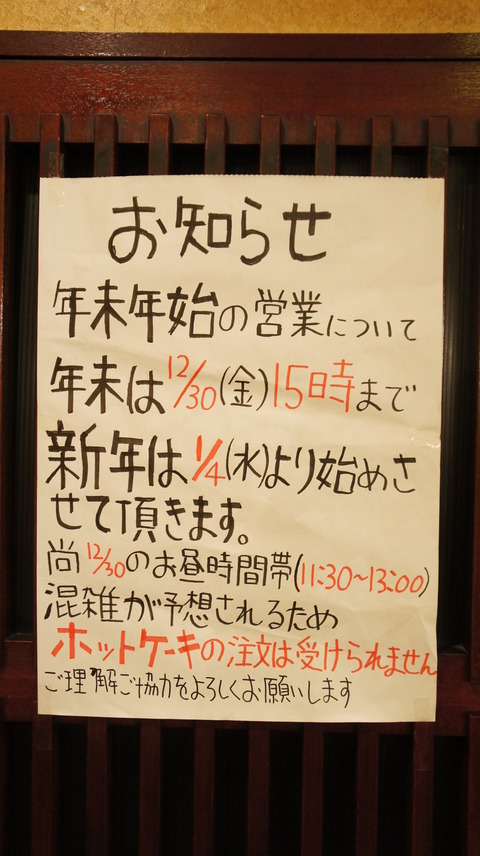 お知らせ
年末年始の営業について
年末は12/30(金)15時まで
新年は1/4(水)より始めさ
せて頂きます。
尚12/30のお昼時間帯(11:30～13:00)
混雑が予想されるため
ホットケーキの注文は受けられません
ご理解ご協力をよろしくお願いします